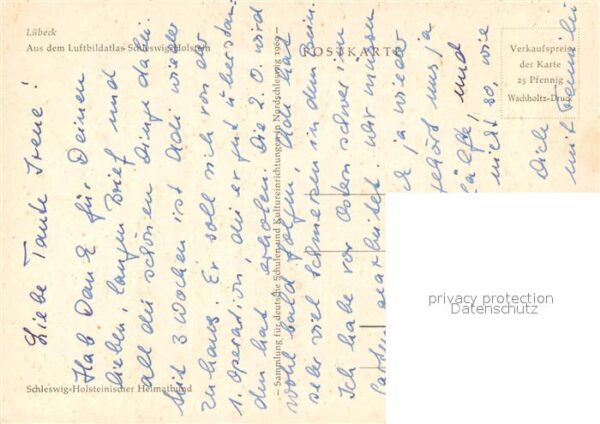 Lübeck
Aus dem Luftbildatlas Schleswig-Holstein
POSTKARTE
Verkaufspreis
der Karte
25 Pfennig
Wachholtz-Druck
— Sammlung für deutsche Schulen und Kultureinrichtungen in Nordschleswig 1969 —
Schleswig-Holsteinischer Heimatbund
Liebe Tante Irene!
Hab Dank für Deinen
lieben, langen Brief und
all die schönen Dinge dabei.
Seit 3 Wochen ist Adi wieder
zuhaus. Er soll sich von der
1. Operation, die er gut überstan-
den hat erholen. Die 2. O. wird
wohl bald folgen, Adi hat
sehr viel Schmerzen in dem Bein.
Ich habe vor Ostern schwer im
Garten gearbeitet. Wir müssen
ja wieder
gehört uns ja
und
nicht so wie
Dich
mit Familie
privacy protection
Datenschutz